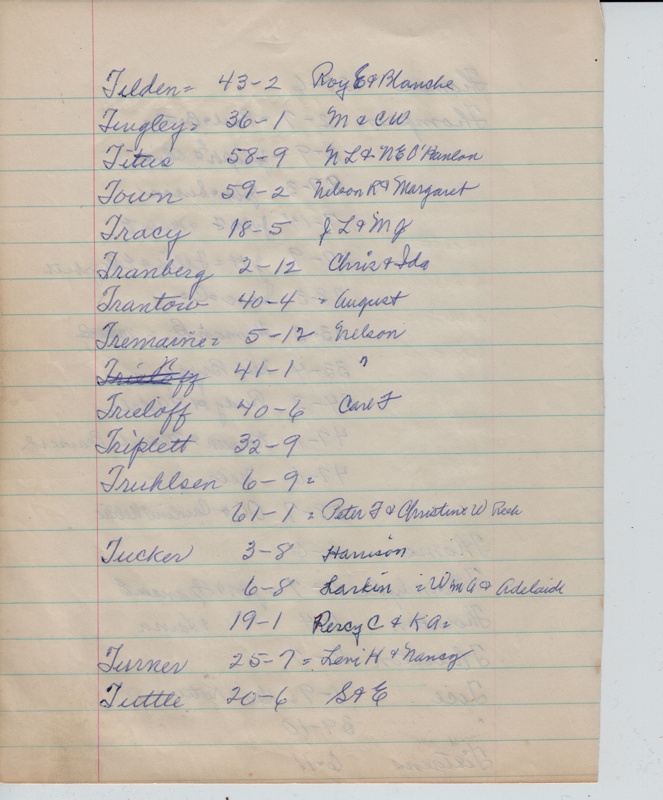 Tilden = 43-2 Roy E & Blanche
Tingley = 36-1 M & CW
Titus 58-9 N L & N E O'Hanlon
Town 59-2 Nelson R & Margaret
Tracy 18-5 J L & M J
Tranberg 2-12 Chris & Ida
Trantow 40-4 = August
Tremaine = 5-12 Nelson
Trieloff 41-1 ?
Trieloff 40-6 Carl F
Triplett 32-9
Truhlsen 6-9 =
61-1 = Peter F & Christine W
Tucker 3-8 Harrison
6-8 Larkin = Wm A & Adelaide
19-1 Percy C & K A =
Turner 25-7 = Levi H & Nancy
Tuttle 20-6 S & E